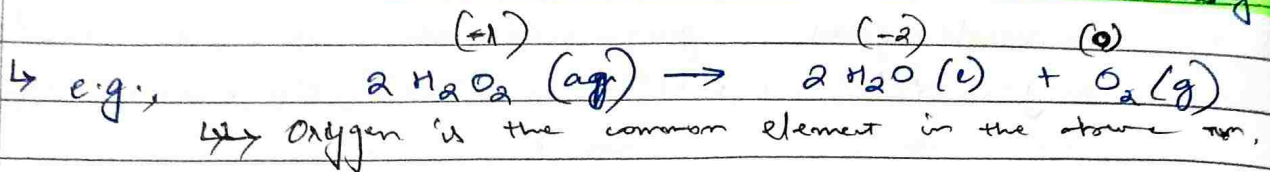 (-1) (-2) (0)
↳ e.g., 2 H₂O₂ (aq) → 2 H₂O (l) + O₂ (g)
↳ Oxygen is the common element in the above rxn.